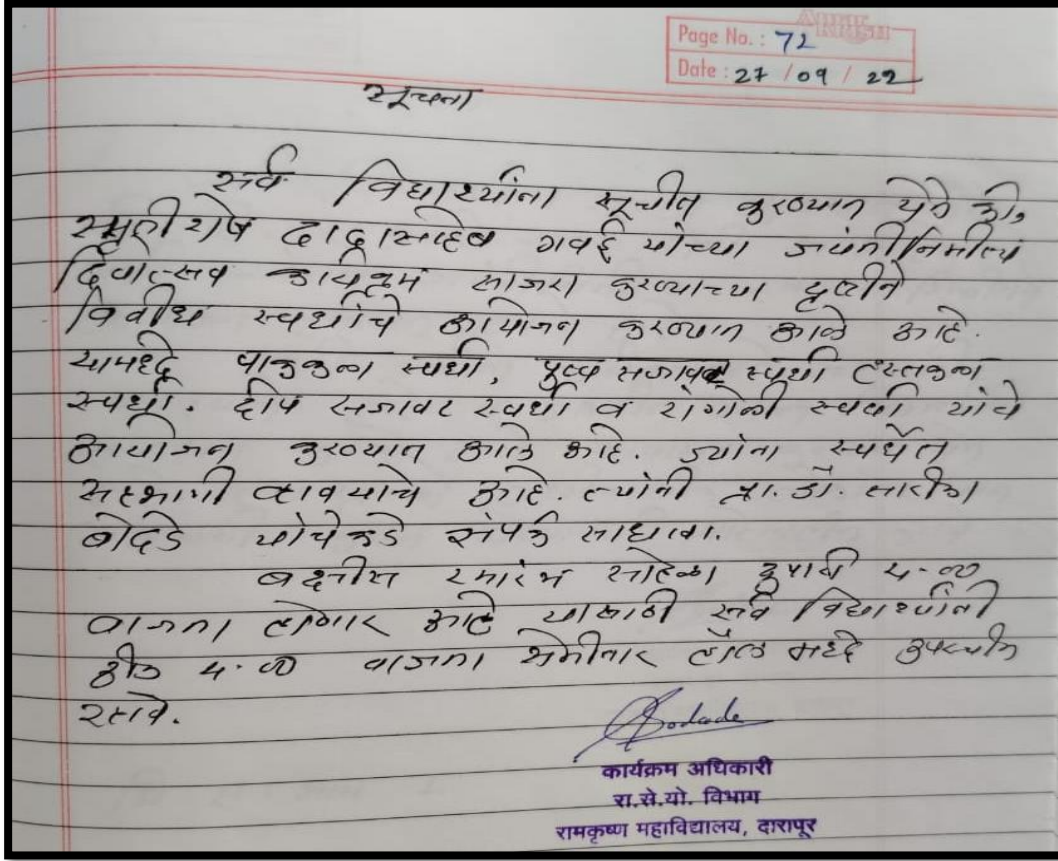 Page No. : 72
Date : 27 / 09 / 22
सूचना
सर्व विद्यार्थ्यांना सूचीत करण्यात येते की,
स्मृतीशेष दादासाहेब गवई यांच्या जयंती निमीत्य
कार्यक्रम साजरा करण्याच्या दृष्टीने
विवीध स्पर्धाचे आयोजन करण्यात आले आहे.
यामध्दे वाककला स्पर्धा, पुष्प सजावट स्पर्धा हस्तकला
स्पर्धा. दीप सजावट स्पर्धा व रांगोळी स्पर्धा यांचे
आयोजन करण्यात आले आहे. ज्यांना स्पर्धेत
सहभागी व्हावयाचे आहे. त्यांनी प्रा. डॉ. सारीका
बोदडे यांचेकडे संपर्क साधावा.
बक्षीस समारंभ सोहळा दुपारी ४.००
वाजता होणार आहे यासाठी सर्व विद्यार्थ्यांनी
ठीक ४.०० वाजता सेमीनार हॉल मध्दे उपस्थीत
रहावे.
Bodade
कार्यक्रम अधिकारी
रा.से.यो. विभाग
रामकृष्ण महाविद्यालय, दारापूर